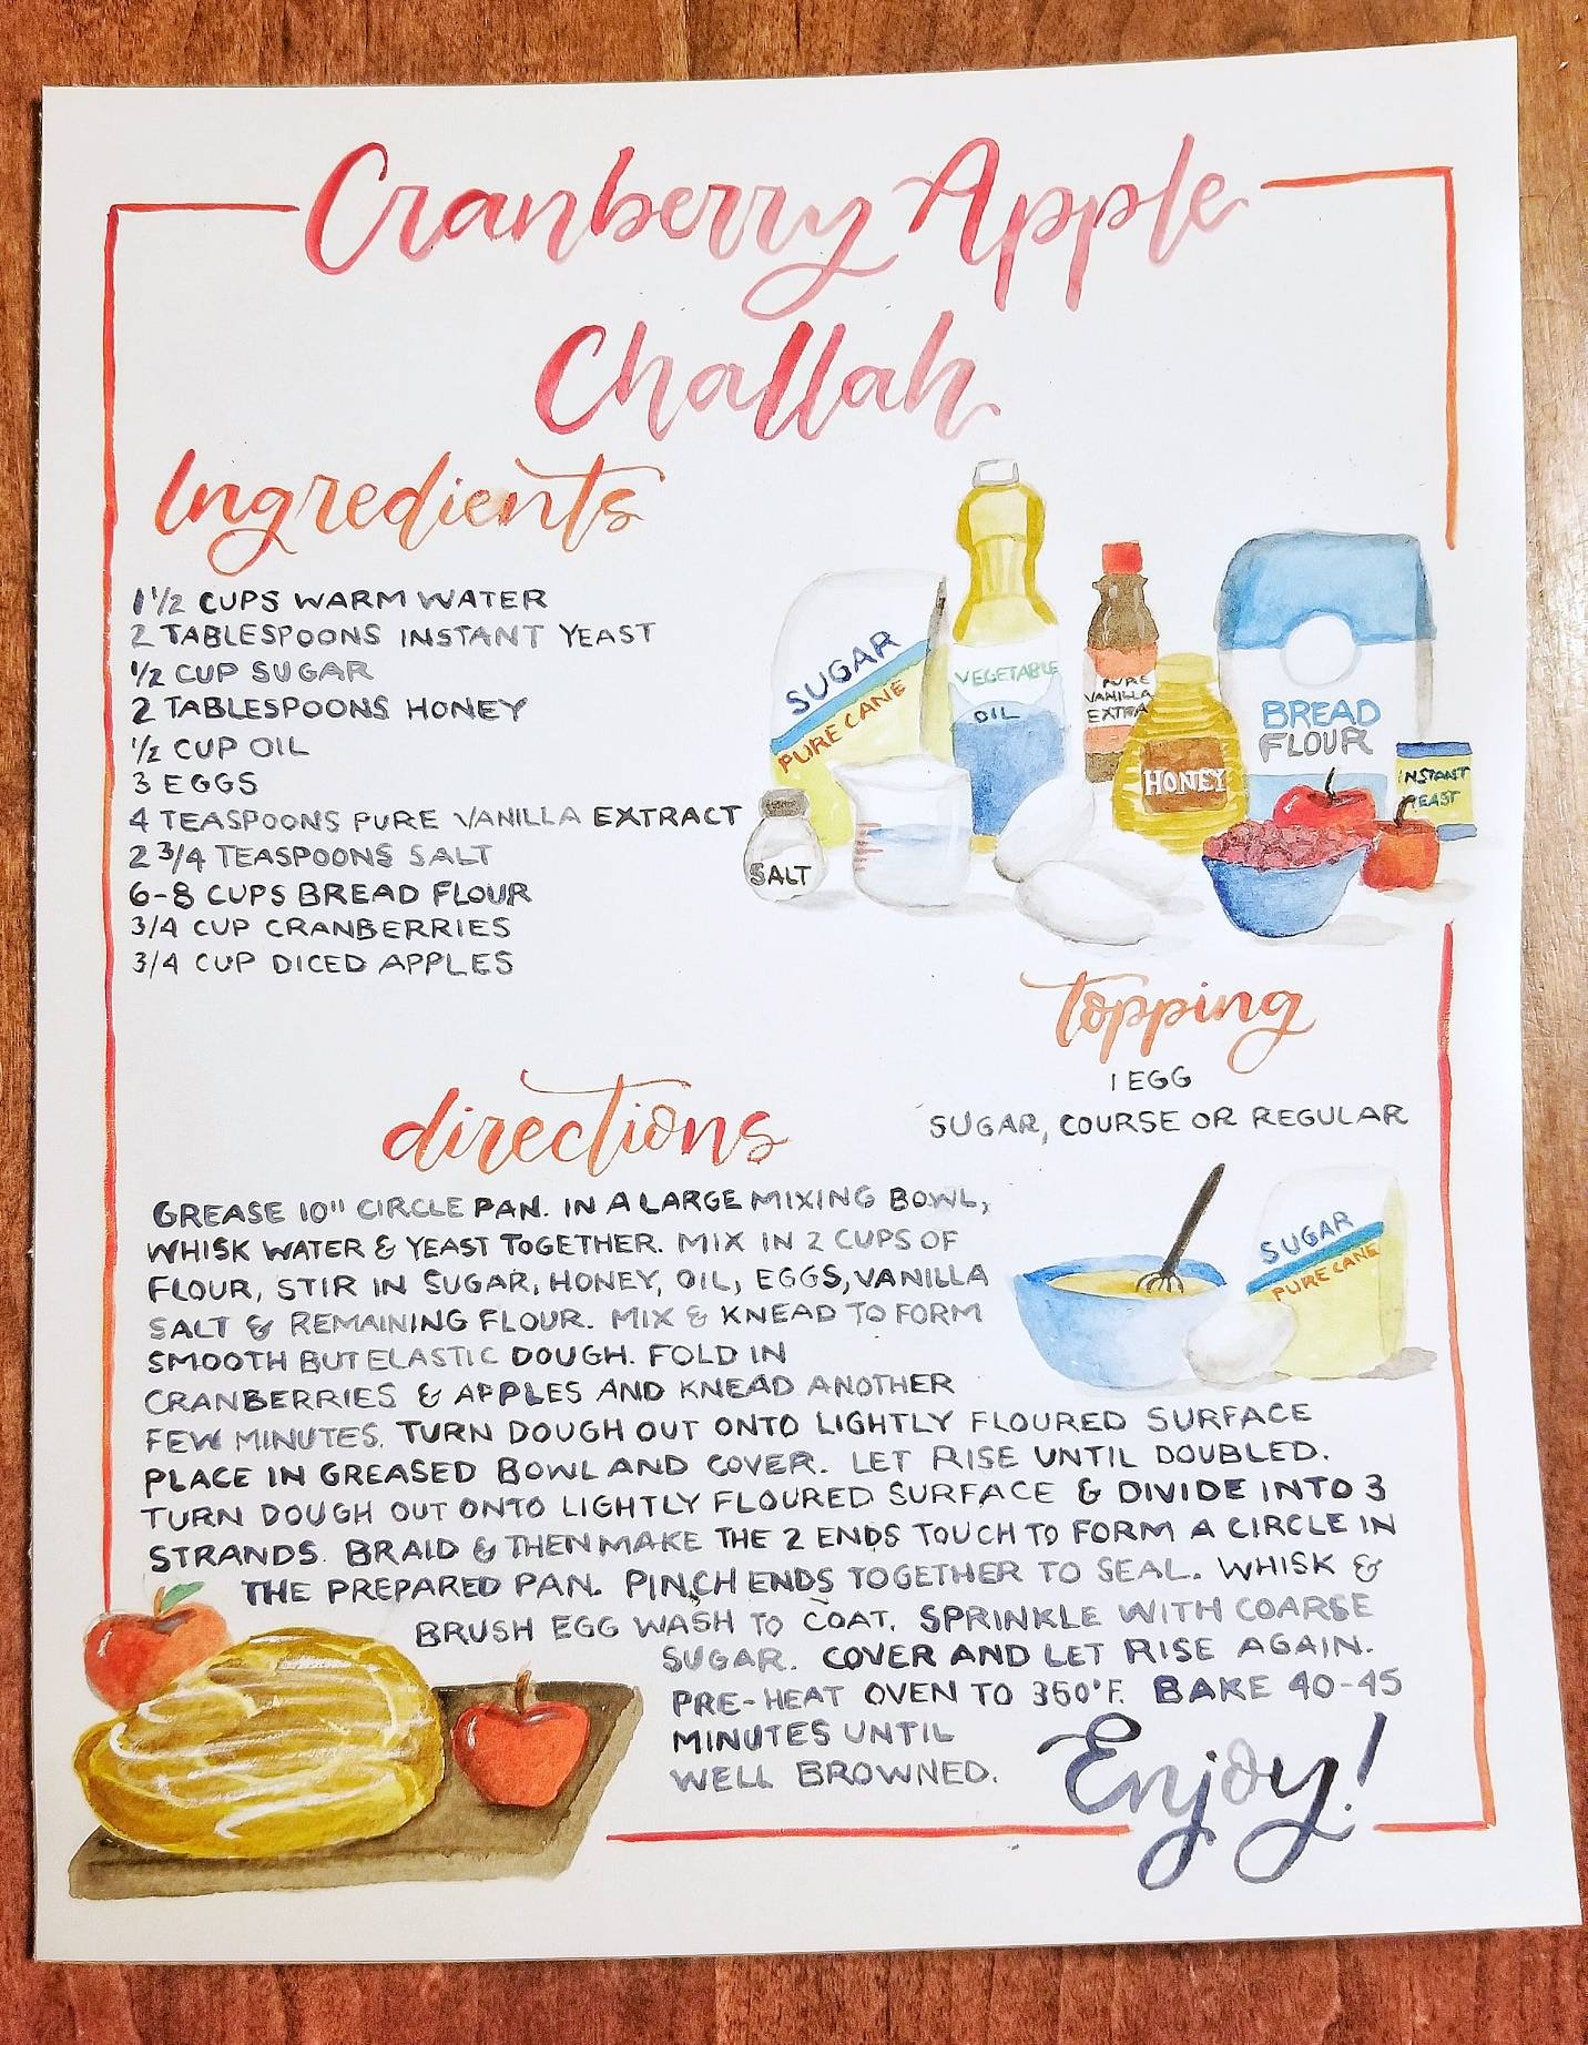 Cranberry Apple
Challah
Ingredients
1 1/2 CUPS WARM WATER
2 TABLESPOONS INSTANT YEAST
1/2 CUP SUGAR
2 TABLESPOONS HONEY
1/2 CUP OIL
3 EGGS
4 TEASPOONS PURE VANILLA EXTRACT
2 3/4 TEASPOONS SALT
6-8 CUPS BREAD FLOUR
3/4 CUP CRANBERRIES
3/4 CUP DICED APPLES
SUGAR
PURE CANE
VEGETABLE
OIL
PURE
VANILLA
EXTRA
HONEY
BREAD
FLOUR
INSTANT
YEAST
SALT
topping
1 EGG
SUGAR, COURSE OR REGULAR
directions
GREASE 10" CIRCLE PAN. IN A LARGE MIXING BOWL,
WHISK WATER & YEAST TOGETHER. MIX IN 2 CUPS OF
FLOUR, STIR IN SUGAR, HONEY, OIL, EGGS, VANILLA
SALT & REMAINING FLOUR. MIX & KNEAD TO FORM
SMOOTH BUT ELASTIC DOUGH. FOLD IN
CRANBERRIES & APPLES AND KNEAD ANOTHER
FEW MINUTES. TURN DOUGH OUT ONTO LIGHTLY FLOURED SURFACE
PLACE IN GREASED BOWL AND COVER. LET RISE UNTIL DOUBLED.
TURN DOUGH OUT ONTO LIGHTLY FLOURED SURFACE & DIVIDE INTO 3
STRANDS. BRAID & THEN MAKE THE 2 ENDS TOUCH TO FORM A CIRCLE IN
THE PREPARED PAN. PINCH ENDS TOGETHER TO SEAL. WHISK &
BRUSH EGG WASH TO COAT. SPRINKLE WITH COARSE
SUGAR. COVER AND LET RISE AGAIN.
PRE-HEAT OVEN TO 350°F. BAKE 40-45
MINUTES UNTIL
WELL BROWNED.
SUGAR
PURE CANE
Enjoy!